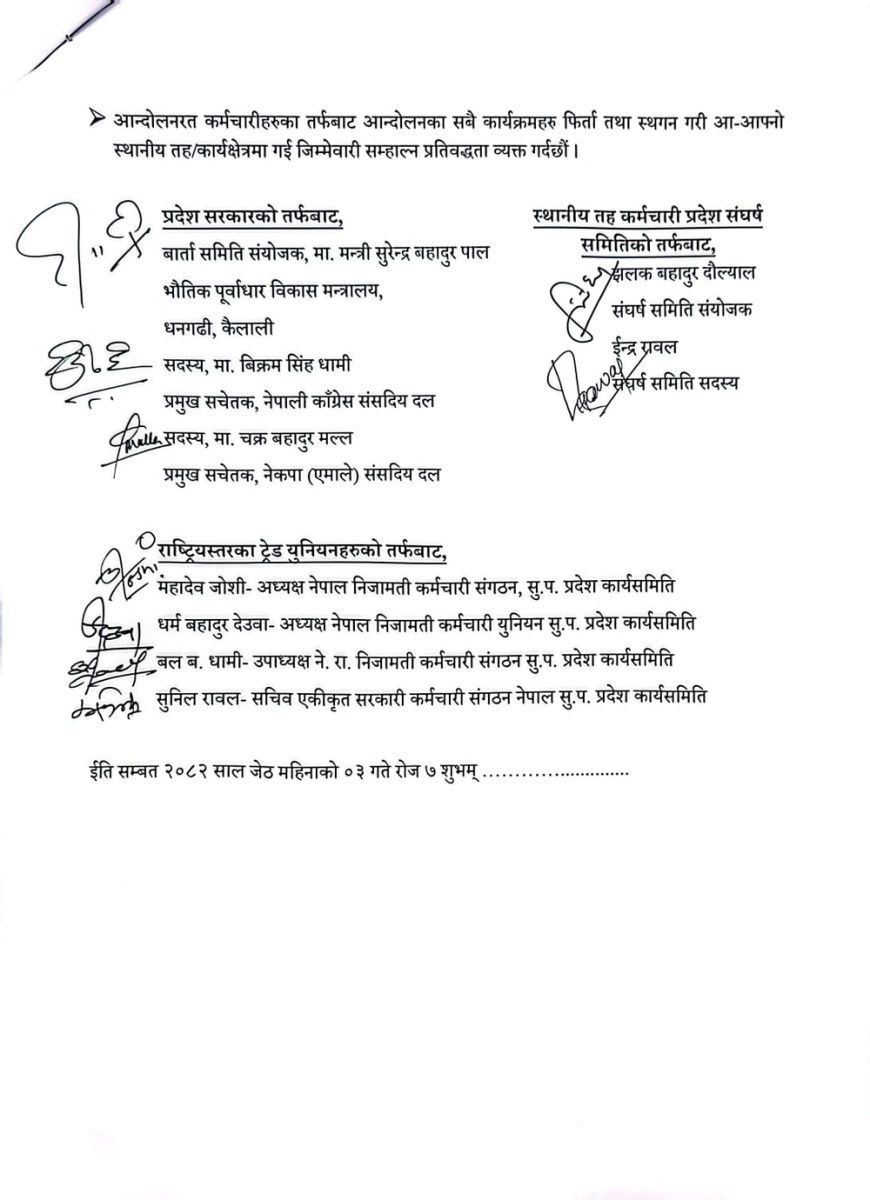 ➢ आन्दोलनरत कर्मचारीहरुका तर्फबाट आन्दोलनका सबै कार्यक्रमहरु फिर्ता तथा स्थगन गरी आ-आफ्नो
स्थानीय तह/कार्यक्षेत्रमा गई जिम्मेवारी सम्हाल्न प्रतिवद्धता व्यक्त गर्दछौं ।
प्रदेश सरकारको तर्फबाट,
बार्ता समिति संयोजक, मा. मन्त्री सुरेन्द्र बहादुर पाल
भौतिक पूर्वाधार विकास मन्त्रालय,
धनगढी, कैलाली
सदस्य, मा. बिक्रम सिंह धामी
प्रमुख सचेतक, नेपाली काँग्रेस संसदिय दल
सदस्य, मा. चक्र बहादुर मल्ल
प्रमुख सचेतक, नेकपा (एमाले) संसदिय दल
स्थानीय तह कर्मचारी प्रदेश संघर्ष
समितिको तर्फबाट,
झलक बहादुर दौल्याल
संघर्ष समिति संयोजक
ईन्द्र रावल
संघर्ष समिति सदस्य
राष्ट्रियस्तरका ट्रेड युनियनहरुको तर्फबाट,
महादेव जोशी- अध्यक्ष नेपाल निजामती कर्मचारी संगठन, सु.प. प्रदेश कार्यसमिति
धर्म बहादुर देउवा- अध्यक्ष नेपाल निजामती कर्मचारी युनियन सु.प. प्रदेश कार्यसमिति
बल ब. धामी- उपाध्यक्ष ने. रा. निजामती कर्मचारी संगठन सु.प. प्रदेश कार्यसमिति
सुनिल रावल- सचिव एकीकृत सरकारी कर्मचारी संगठन नेपाल सु.प. प्रदेश कार्यसमिति
ईति सम्बत २०८२ साल जेठ महिनाको ०३ गते रोज ७ शुभम् ...........................